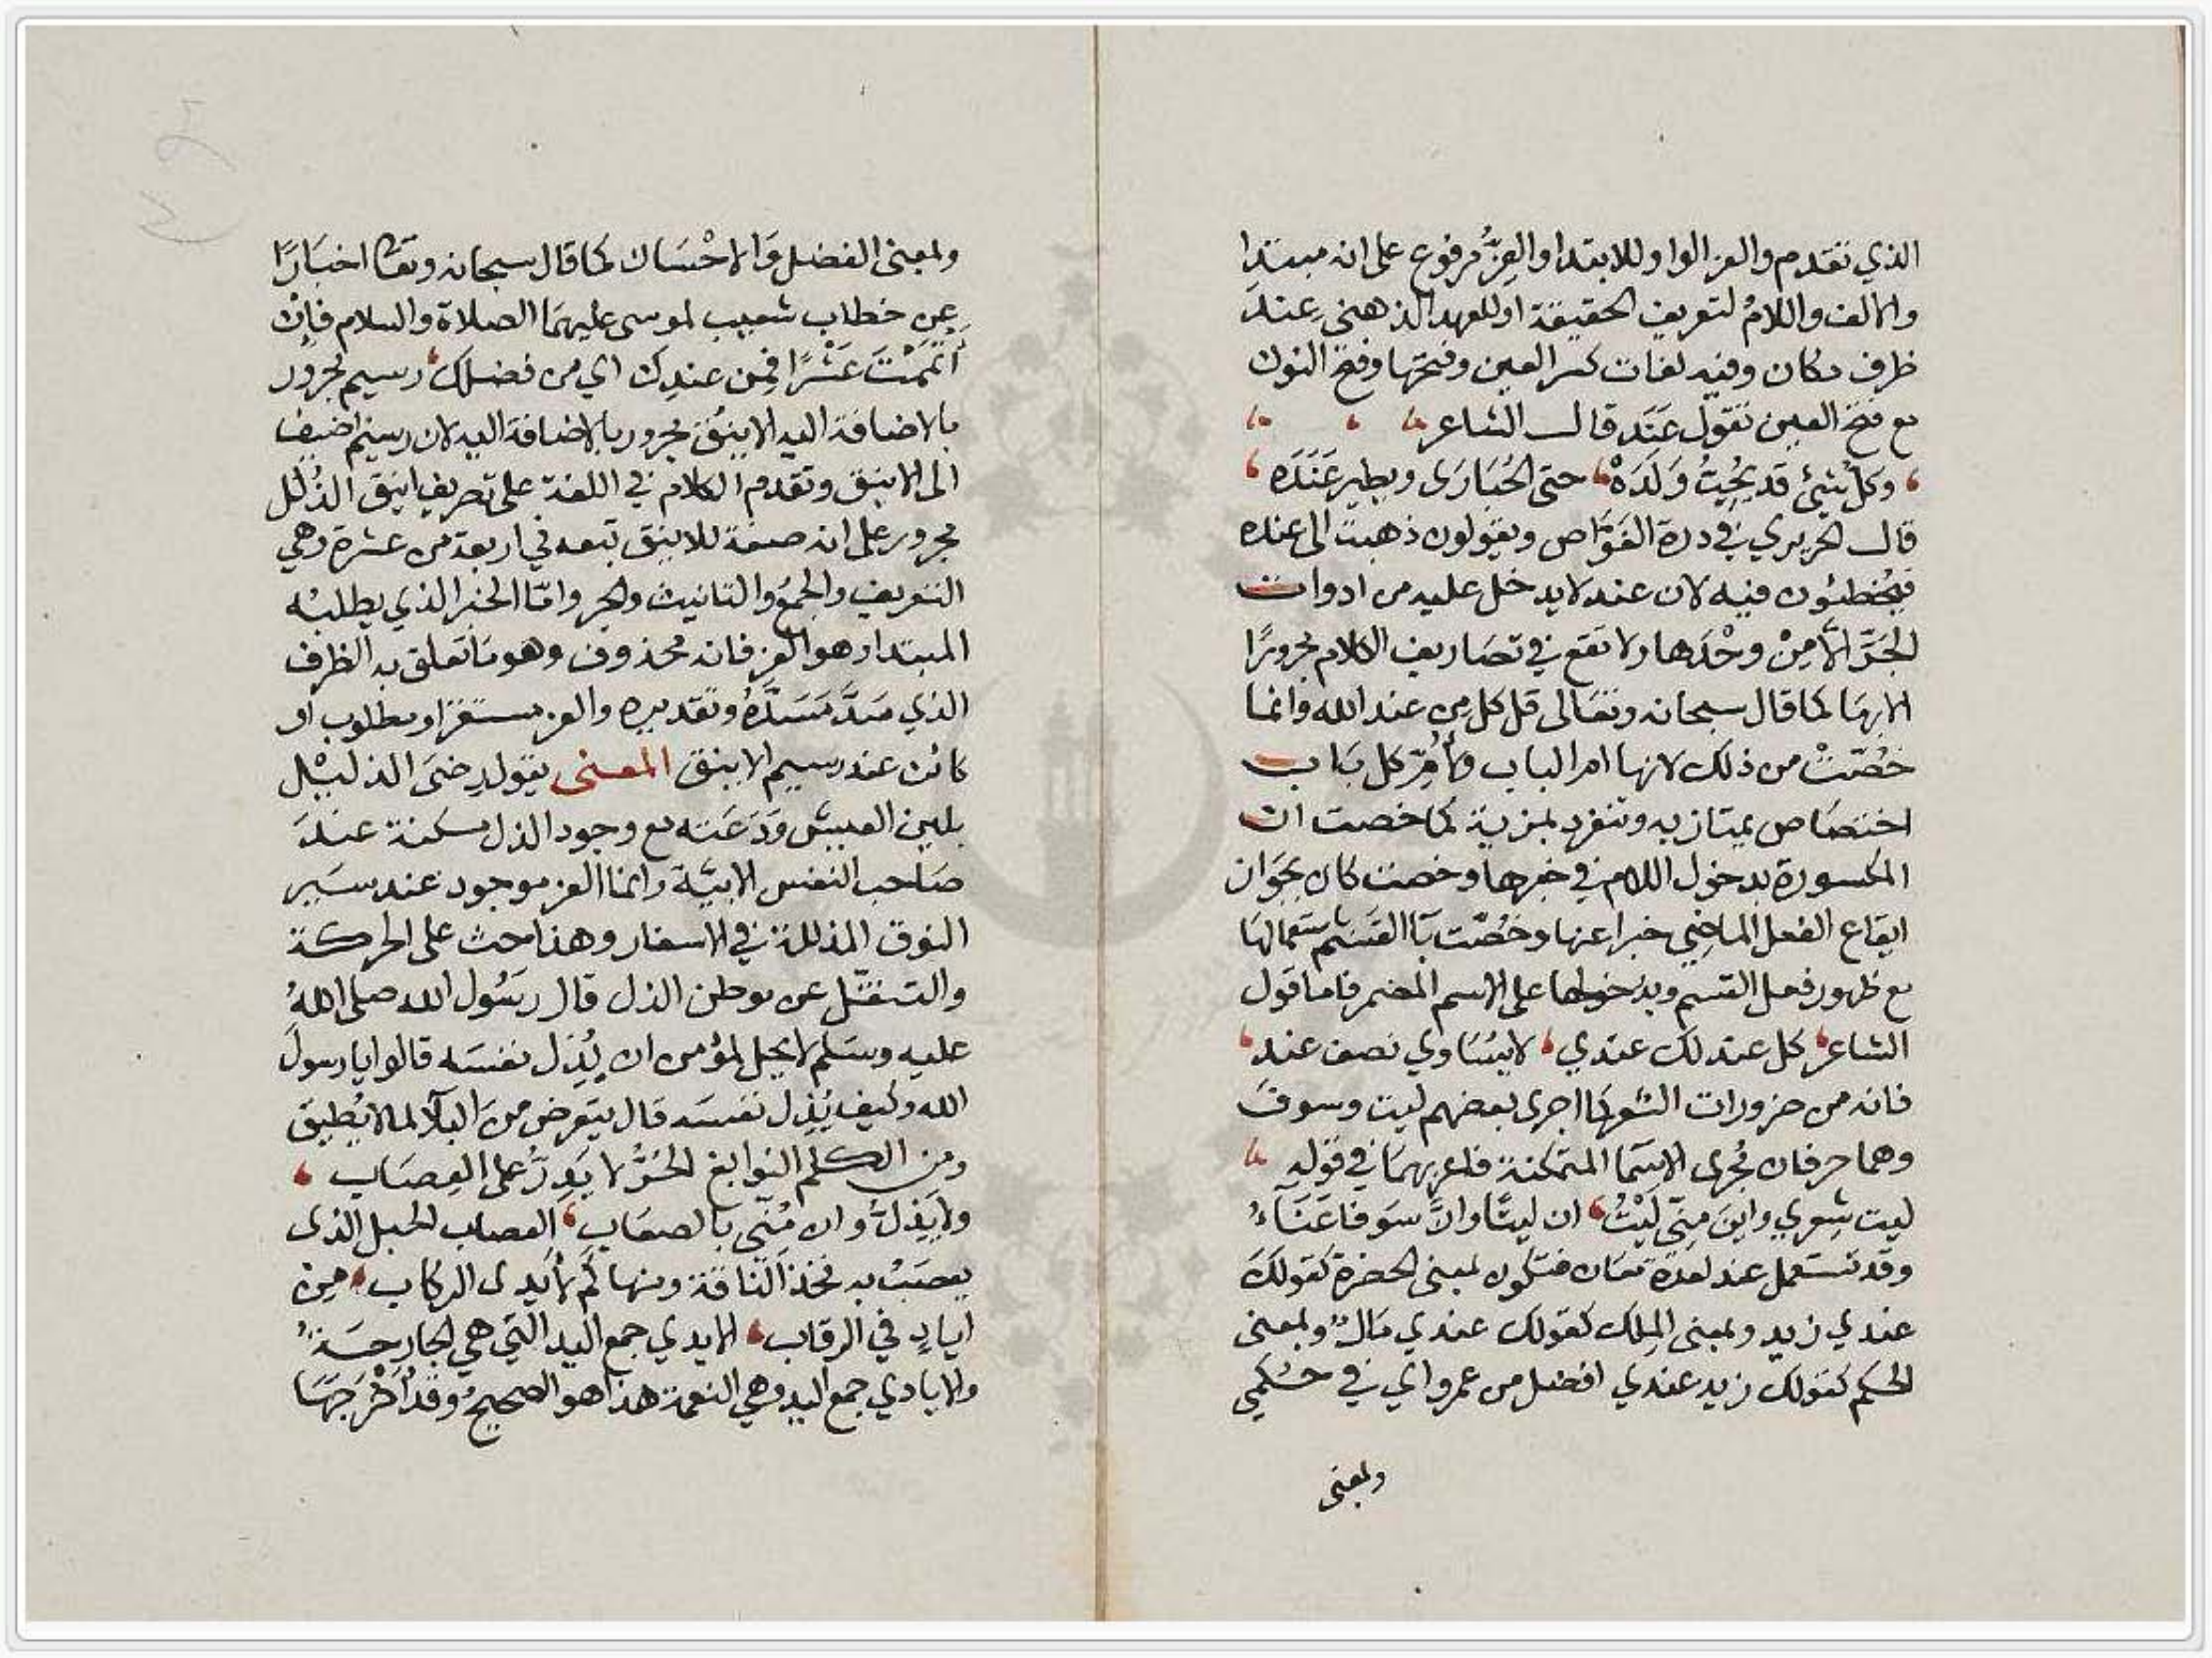 الذي تقدم والعز الواو للابتدا والعِزُّ مرفوع على انه مبتدا
والالف واللامُ لتعريف الحقيقة او للعهد الذهني عِندَ
ظرف مكان وفيه لغات كسر العين وفتحها وفتح النون
مع فتح العين تقول عَنَد قال الشاعر
وكلّ شيئ قد يُحِبُّ وَلَدَهْ حتى الحُبَارَى ويطير عَنَدَه
قال الحريري في درة الغَوّاص ويقولون ذهبت الى عنده
فيُخطئون فيه لان عند لا يدخل عليه من ادوات
الجَرّ الّا مِنْ وحْدَها ولا تقع في تصَاريف الكلام مجرورًا
الا بهَا كما قال سبحانه وتعَالى قل كل من عند الله وانما
خُصّتْ من ذلك لانها ام الباب ولأُمِّ كل بَاب
اختصَاص يمتاز به وتنفرد بمزية كما خصت ان
المكسورة بدخول اللام في خبرها وخصت كان بجَوَاز
ايقاع الفعل الماضِي خبرا عنها وخُصّت بَا القَسَم باستعمالهَا
مع ظهور فعل القسم وبدخولها على الاسم المضمر فاما قول
الشاعر كل عند لك عندي لا يسَاوي نصف عند
فانه من ضرورات الشعر كما اجرى بعضهم ليت وسوفَ
وهما حرفان مُجرى الاسمَا المتمكنة فاعربهمَا في قوله
ليت شِعري واينَ مِنّي لَيْتُ ان ليتًا وانّ سَوفا عَنَآءُ
وقد تستعمل عند لعدة معَان فتكون بمعنى الحضرة كقولكَ
عندي زيد وبمعنى المِلك كقولك عندي مَالٌ وبمعنى
الحكم كقولك زيد عندي افضل من عمرو اي في حُكمي
وبمعنى
وبمعنى الفضل وَالاحْسَان كما قال سبحانه وتعَا اخبَارًا
عن خطاب شعيب لموسى عليهمَا الصلاة والسلام فاِنْ
اَتْمَمْتَ عَشْرًا فمِن عندِك اي من فضلك رسيم مجرُور
بالاضافة اليه الاينُق مجرور بالاضافة اليه لان رسيم اضيف
الى الاينق وتقدم الكلام في اللغة على تصريف اينق الذُلل
مجرور على انه صفة للاينق تبعه في اربعة من عشرة وهي
التعريف والجمعُ والتانيث والجر وامّا الخبر الذي يطلبُه
المبتدا وهو العز فانه محذوف وهو مَا تعلق به الظرف
الذي سَدَّ مَسَدَّهُ وتقديره والعز مستقر او مطلوب او
كائن عند رسيم الاينق المعنى يقول رضَى الذليْل
بلين العيش وَدَعَته مع وجود الذل مسكنة عندَ
صَاحب النفس الابيّة وانما العز موجود عند سَير
النوق المذللة في الاسفار وهذا حث على الحركة
والتنقّل عن موطن الذل قال رسُول الله صلى اللهُ
عليه وسَلم لا يحل لمؤمن ان يُذِل نفسَه قالوا يا رسولَ
الله وكيف يُذِل نفسَه قال يتعرض منَ البلآ لما لا يُطيق
ومن الكلم النوابغ الحُرّ لا يَدِرُّ على العِصَاب
ولا يَذِلّ وان مُنِّي بالصعَاب العصاب الحبل الذى
يعصَبُ به فخذ النّاقة ومنها كَم لأيدى الركاب مِن
ايادٍ في الرقاب الايدي جمع اليد التي هي الجارحَةُ
والايادي جمع اليد وهي النعمة هذا هو الصحيحُ وقد اَخْرَجَهَا